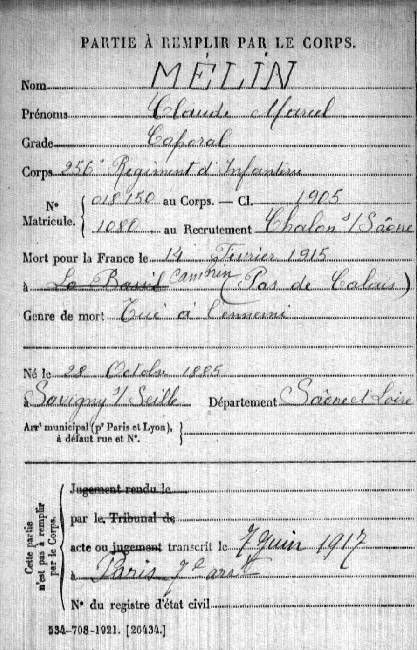 PARTIE À REMPLIR PAR LE CORPS.
Nom MÉLIN
Prénoms Claude Marcel
Grade Caporal
Corps 256e Régiment d'Infanterie
N° Matricule. { 018150 au Corps. — Cl. 1905
1080 au Recrutement Chalon s/ Saône
Mort pour la France le 14 Février 1915
à La Bassée Cambrin (Pas de Calais)
Genre de mort Tué à l'ennemi
Né le 28 Octobre 1885
à Savigny s/ Seille Département Saône et Loire
Arrt municipal (pr Paris et Lyon), à défaut rue et N°. }
Cette partie n'est pas à remplir par le Corps. {
Jugement rendu le
par le Tribunal de
acte ou jugement transcrit le 7 Juin 1917
à Paris 7e arrt
N° du registre d'état civil
534-708-1921. [26434.]